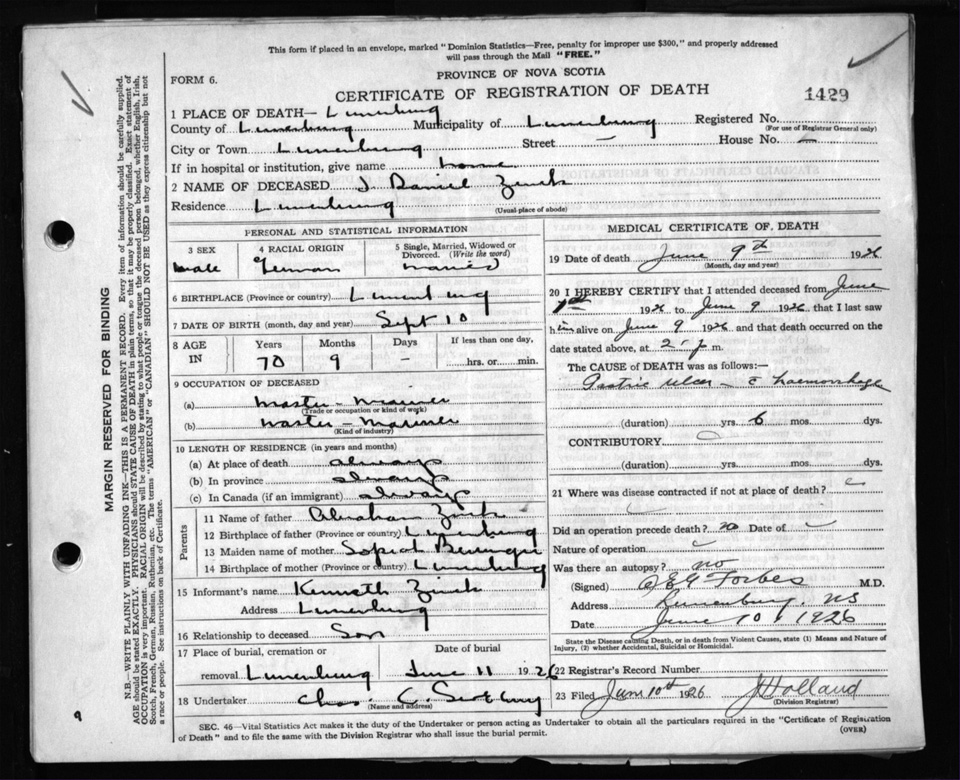 This form if placed in an envelope, marked "Dominion Statistics—Free, penalty for improper use $300," and properly addressed
will pass through the Mail "FREE."
FORM 6.
PROVINCE OF NOVA SCOTIA
CERTIFICATE OF REGISTRATION OF DEATH
1429
1 PLACE OF DEATH— Lunenburg
County of Lunenburg Municipality of Lunenburg Registered No.
(For use of Registrar General only)
City or Town Lunenburg Street — House No. —
If in hospital or institution, give name home
2 NAME OF DECEASED J. Daniel Zinck
Residence Lunenburg
(Usual place of abode)
PERSONAL AND STATISTICAL INFORMATION
3 SEX 4 RACIAL ORIGIN 5 Single, Married, Widowed or Divorced. (Write the word)
male German married
6 BIRTHPLACE (Province or country) Lunenburg
7 DATE OF BIRTH (month, day and year) Sept 10
8 AGE IN Years Months Days If less than one day.
70 9 — hrs. or min.
9 OCCUPATION OF DECEASED
(a) Master - Mariner
(Trade or occupation or kind of work)
(b) Master - Mariner
(Kind of industry)
10 LENGTH OF RESIDENCE (in years and months)
(a) At place of death always
(b) In province always
(c) In Canada (if an immigrant) always
Parents
11 Name of father Abraham Zinck
12 Birthplace of father (Province or country) Lunenburg
13 Maiden name of mother
14 Birthplace of mother (Province or country) Lunenburg
15 Informant's name Kenneth Zinck
Address Lunenburg
16 Relationship to deceased Son
17 Place of burial, cremation or removal Lunenburg Date of burial June 11 1926
18 Undertaker Chas C.
(Name and address)
MEDICAL CERTIFICATE OF DEATH
19 Date of death June 9th 1926
(Month, day and year)
20 I HEREBY CERTIFY that I attended deceased from June
1st 1926 to June 9 1926 that I last saw
him alive on June 9 1926 and that death occurred on the
date stated above, at 2 - p m.
The CAUSE of DEATH was as follows:—
Gastric ulcer - c haemorrhage
(duration) yrs. 6 mos. dys.
CONTRIBUTORY
(duration) yrs. mos. dys.
21 Where was disease contracted if not at place of death?
Did an operation precede death? no Date of
Nature of operation
Was there an autopsy? no
(Signed) Forbes M.D.
Address Lunenburg, NS
Date June 10, 1926
State the Disease causing Death, or in death from Violent Causes, state (1) Means and Nature of
Injury, (2) whether Accidental, Suicidal or Homicidal.
22 Registrar's Record Number
23 Filed June 10th 1926 J Holland
(Division Registrar)
SEC. 46—Vital Statistics Act makes it the duty of the Undertaker or person acting as Undertaker to obtain all the particulars required in the "Certificate of Registration
of Death" and to file the same with the Division Registrar who shall issue the burial permit.
(OVER)
MARGIN RESERVED FOR BINDING
N.B.—WRITE PLAINLY WITH UNFADING INK—THIS IS A PERMANENT RECORD. Every item of information should be carefully supplied.
AGE should be stated EXACTLY. PHYSICIANS should STATE CAUSE OF DEATH in plain terms, so that it may be properly classified. Exact statement of
OCCUPATION is very important. RACIAL ORIGIN will be described by stating to what people or tongue the deceased person belonged, whether English, Irish,
Scotch, French, German, Russian, Ruthenian, etc. The terms "AMERICAN" or "CANADIAN" SHOULD NOT BE USED as they express citizenship but not
a race or people. See instructions on back of Certificate.